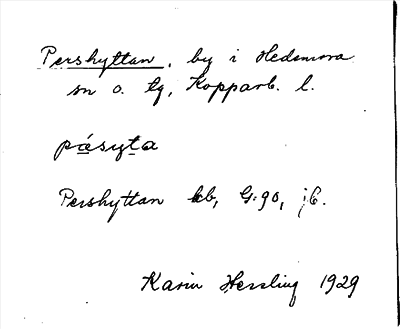 Pershyttan, by i Hedemora
sn o. tg, Kopparb. l.
pásyta
Pershyttan kb, G:90, jb.
Karin Hessling 1929